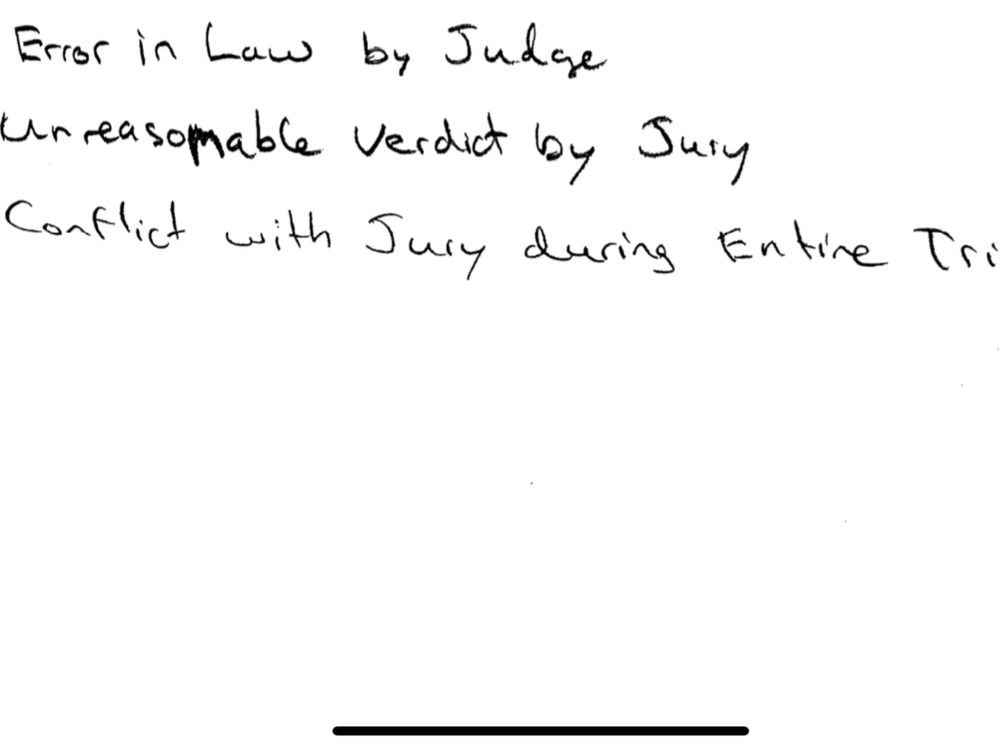 Error in Law by Judge
Unreasonable Verdict by Jury
Conflict with Jury during Entire Tri